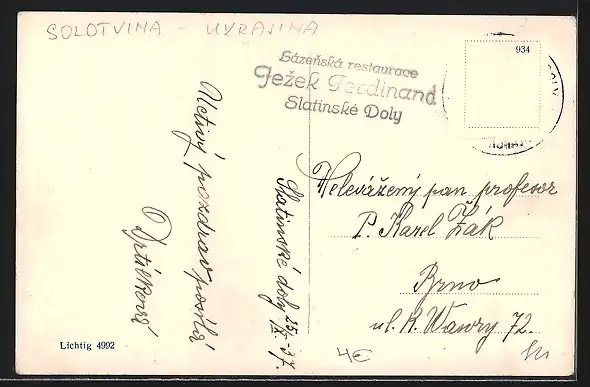 SOLOTVINA - UKRAJINA
Lázeňská restaurace
Ježek Ferdinand
Slatinské Doly
934
Uctivý pozdrav posílá
Drtílková
Slatinské doly 25. 37.
IX.
Velevážený pan profesor
P. Karel Žák
Brno
ul. K. Wawry 72.
Lichtig 4992
4€